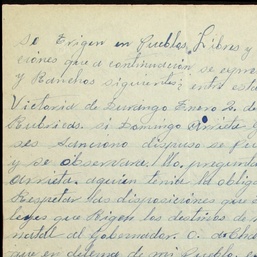 Se Erigen en Pueblos, Libres y
ciones que a continuacion se expre
y Ranchos siguientes; entre esta
Victoria de Durango Enero 2. de
Rubricas. si Domingo Arrieta
ses Sanciono dispuso se Pu
y se observara. Yo pregunta
Arrieta. aquien tenia la obliga
Respetar las disposiciones que
leyes que Rigen los destinos de
mental al Gobernador. C. de
que en defensa de mi Pueblo,